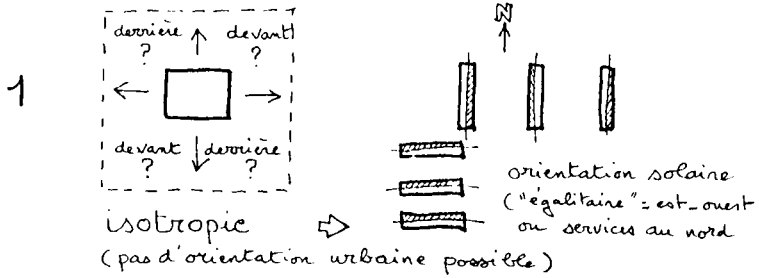 1
derrière ? devant ?
devant ? derrière ?
N
isotropic
(pas d'orientation urbaine possible)
orientation solaire
("égalitaire" = est-ouest
ou services au nord